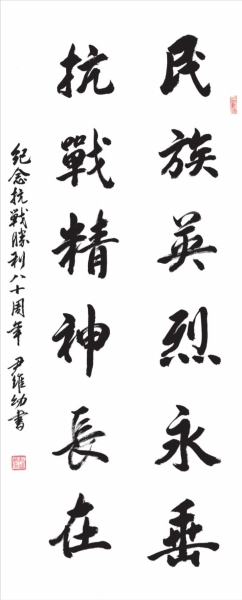 民族英烈永垂
抗戰精神長在
纪念抗战勝利八十周年 尹維幼書